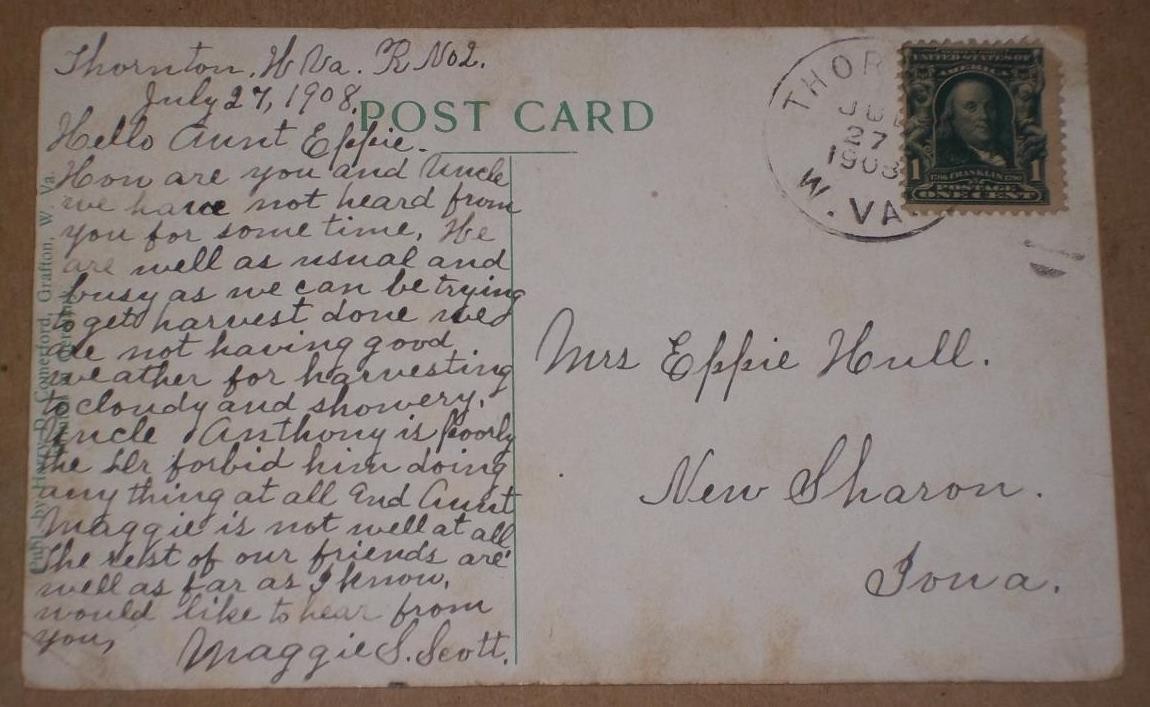 Thornton, W Va. R No2.
July 27, 1908.
POST CARD
Hello Aunt Eppie.
How are you and Uncle
we have not heard from
you for some time, We
are well as usual and
busy as we can be trying
to get harvest done we
are not having good
weather for harvesting
to cloudy and showery,
Uncle Anthony is poorly
the Dr forbid him doing
any thing at all and Aunt
Maggie is not well at all
The rest of our friends are
well as far as I know.
would like to hear from
you,
Maggie S. Scott.
Publ. by Harry D. Comerford, Grafton, W. Va.
THOR
JUL
27
1908
W. VA.
UNITED STATES OF
AMERICA
1 1
1706 FRANKLIN 1790
POSTAGE
ONE CENT
Mrs Eppie Hull.
New Sharon.
Iowa.